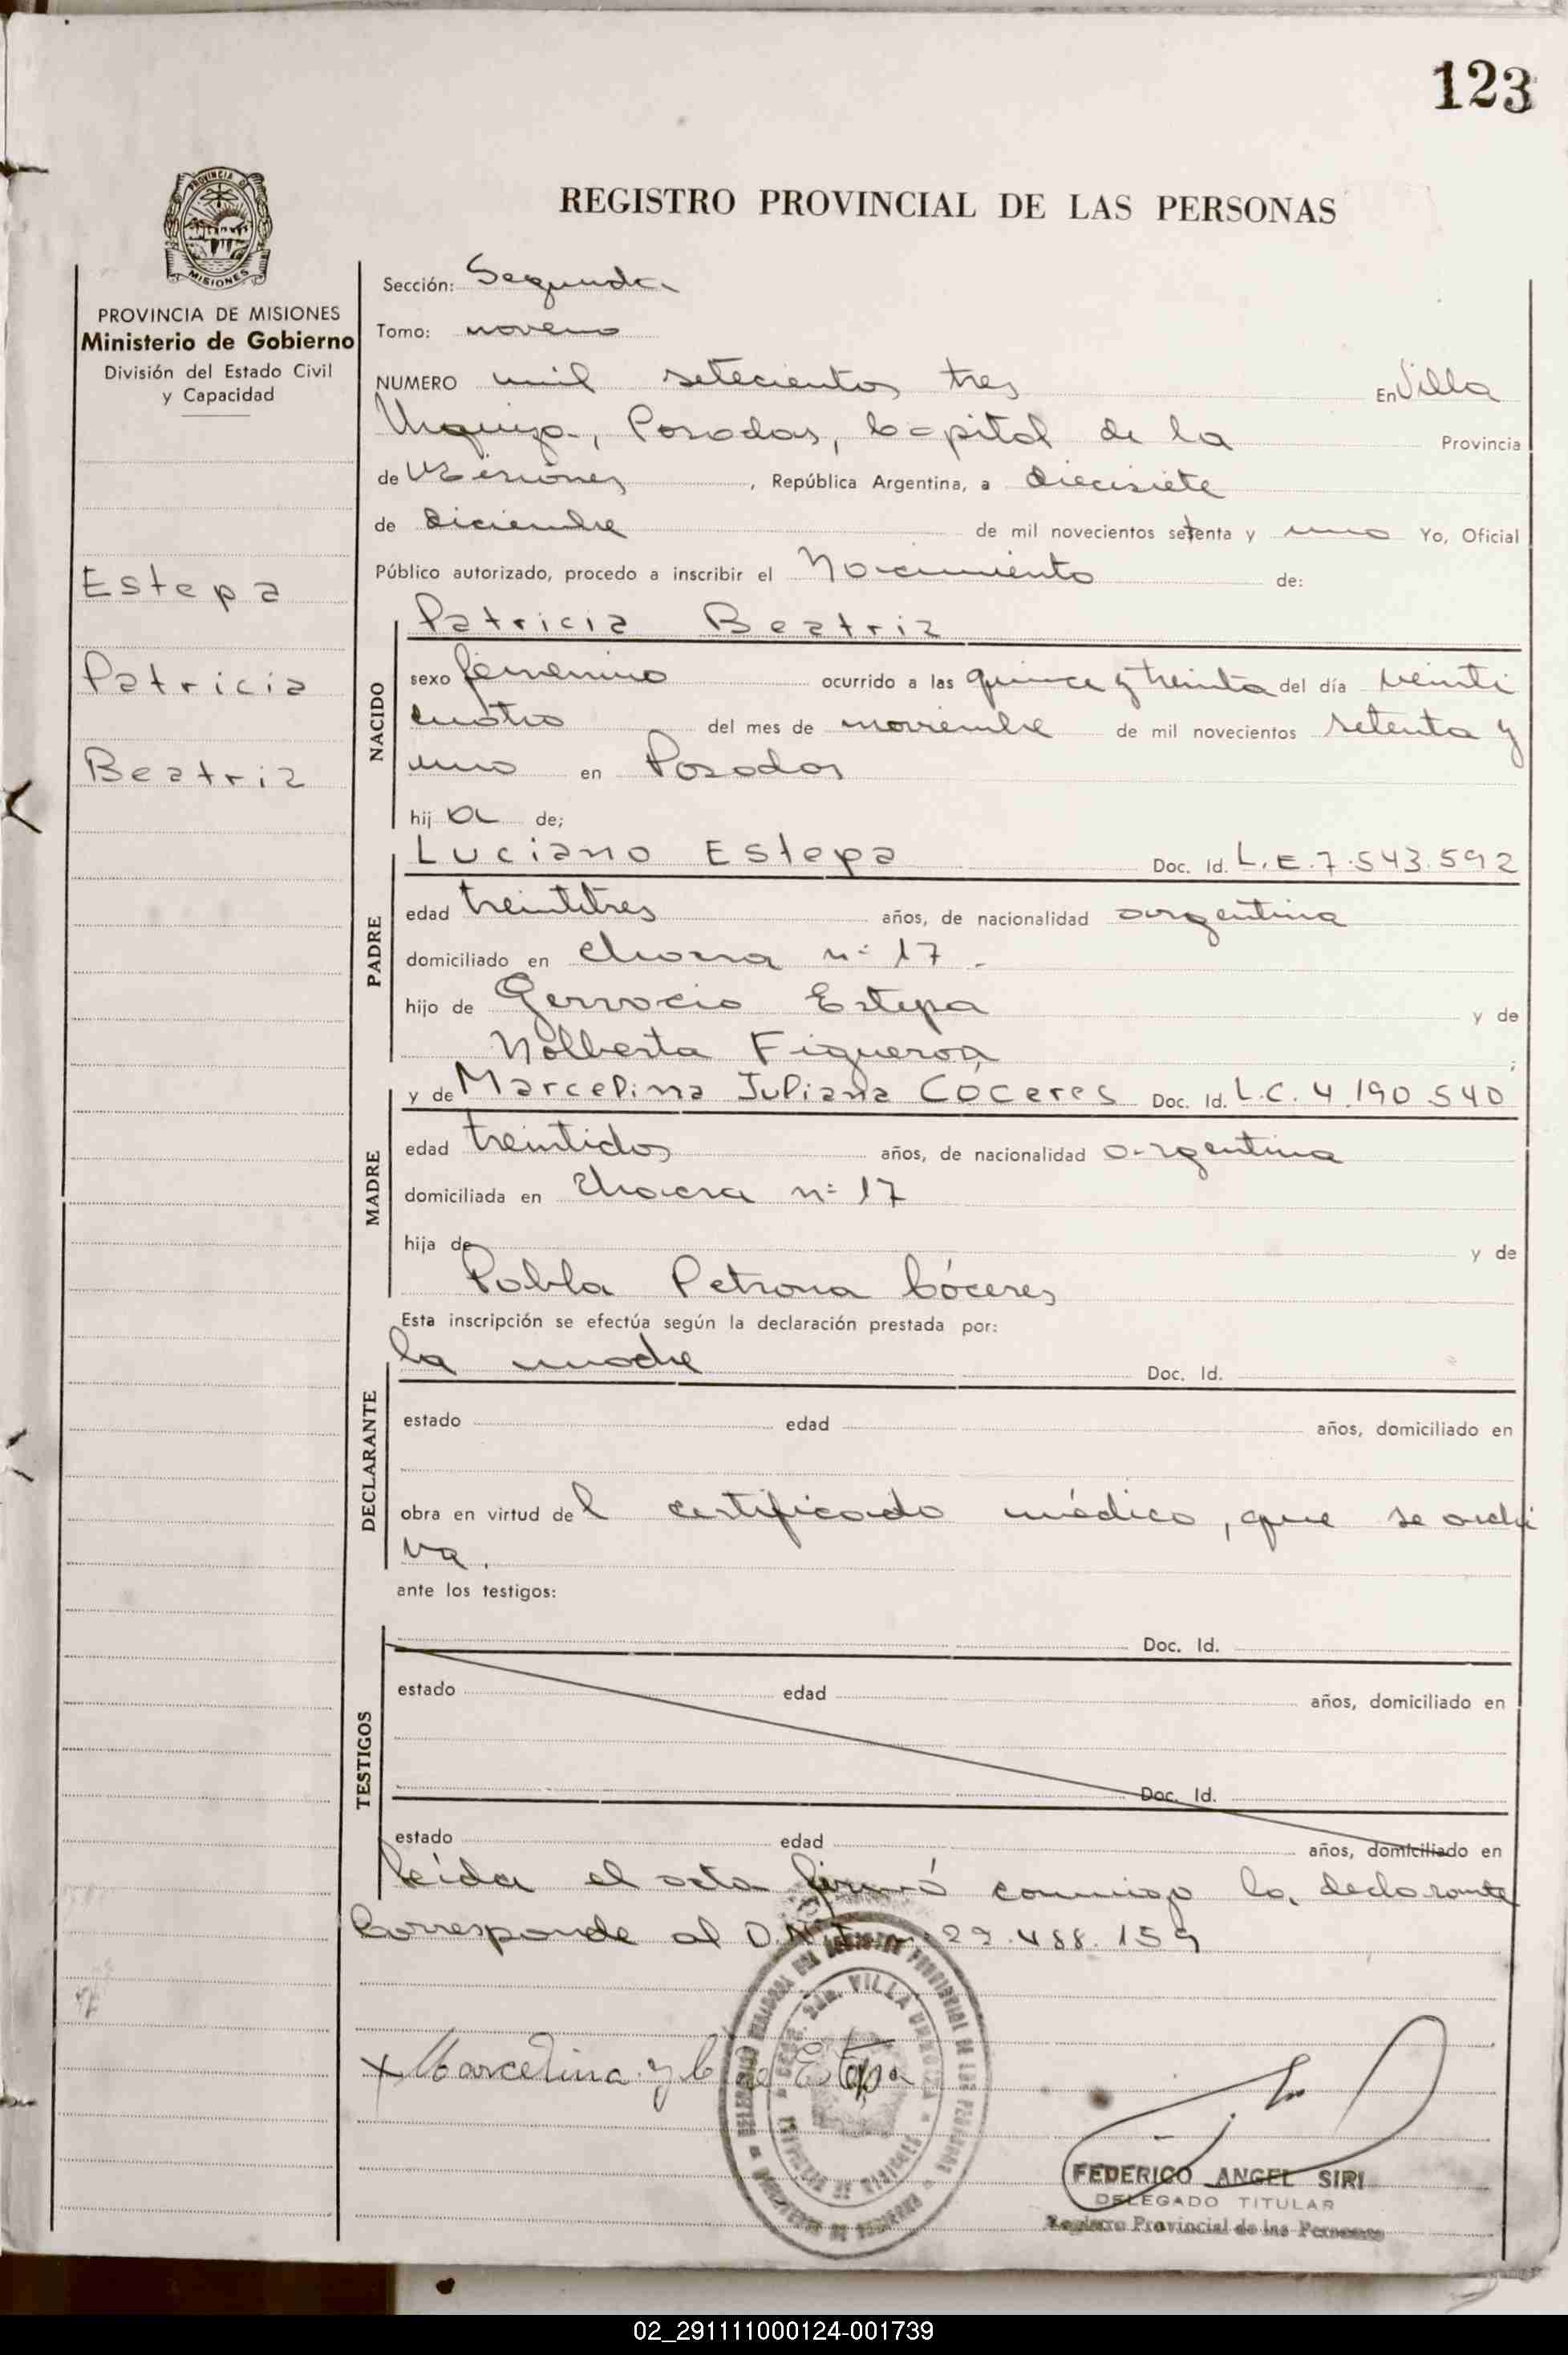 123
REGISTRO PROVINCIAL DE LAS PERSONAS
PROVINCIA DE
MISIONES
PROVINCIA DE MISIONES
Ministerio de Gobierno
División del Estado Civil
y Capacidad
Estepa
Patricia
Beatriz
Sección: Segunda
Tomo: noveno
NUMERO mil setecientos tres En Villa
Urquiza, Posadas, Capital de la Provincia
de Misiones, República Argentina, a diecisiete
de diciembre de mil novecientos setenta y uno Yo, Oficial
Público autorizado, procedo a inscribir el Nacimiento de:
NACIDO
Patricia Beatriz
sexo femenino ocurrido a las quince y treinta del día veinti
cuatro del mes de noviembre de mil novecientos setenta y
uno en Posadas
hij a de;
PADRE
Luciano Estepa Doc. Id. L.E. 7.543.592
edad treintitres años, de nacionalidad argentina
domiciliado en chacra nº 17.
hijo de Gervacio Estepa y de
Nolberta Figueroa;
MADRE
y de Marcelina Juliana Cáceres Doc. Id. L.C. 4.190.540
edad treintidos años, de nacionalidad argentina
domiciliada en Chacra nº 17
hija de y de
Pabla Petrona Cáceres
Esta inscripción se efectúa según la declaración prestada por:
DECLARANTE
la madre Doc. Id.
estado edad años, domiciliado en
obra en virtud del certificado médico, que se archi
va.
ante los testigos:
TESTIGOS
Doc. Id.
estado edad años, domiciliado en
Doc. Id.
estado edad años, domiciliado en
Leída el acta firmó conmigo la declarante
Corresponde al D.N.I. 22.488.159
Marcelina J C de Estepa
VILLA URQUIZA
FEDERICO ANGEL SIRI
DELEGADO TITULAR
Registro Provincial de las Personas
02_291111000124-001739